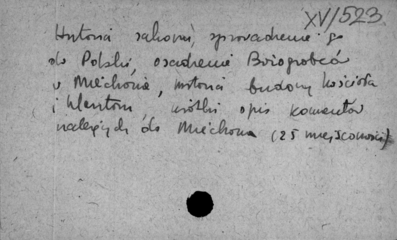 XV/523
Historia zakonu, sprowadzenie go
do Polski, osadzenie Bożogrobców
w Miechowie, historia budowy kościoła
i klasztoru krótki opis komentów
należących do Miechowa (25 miejscowości)